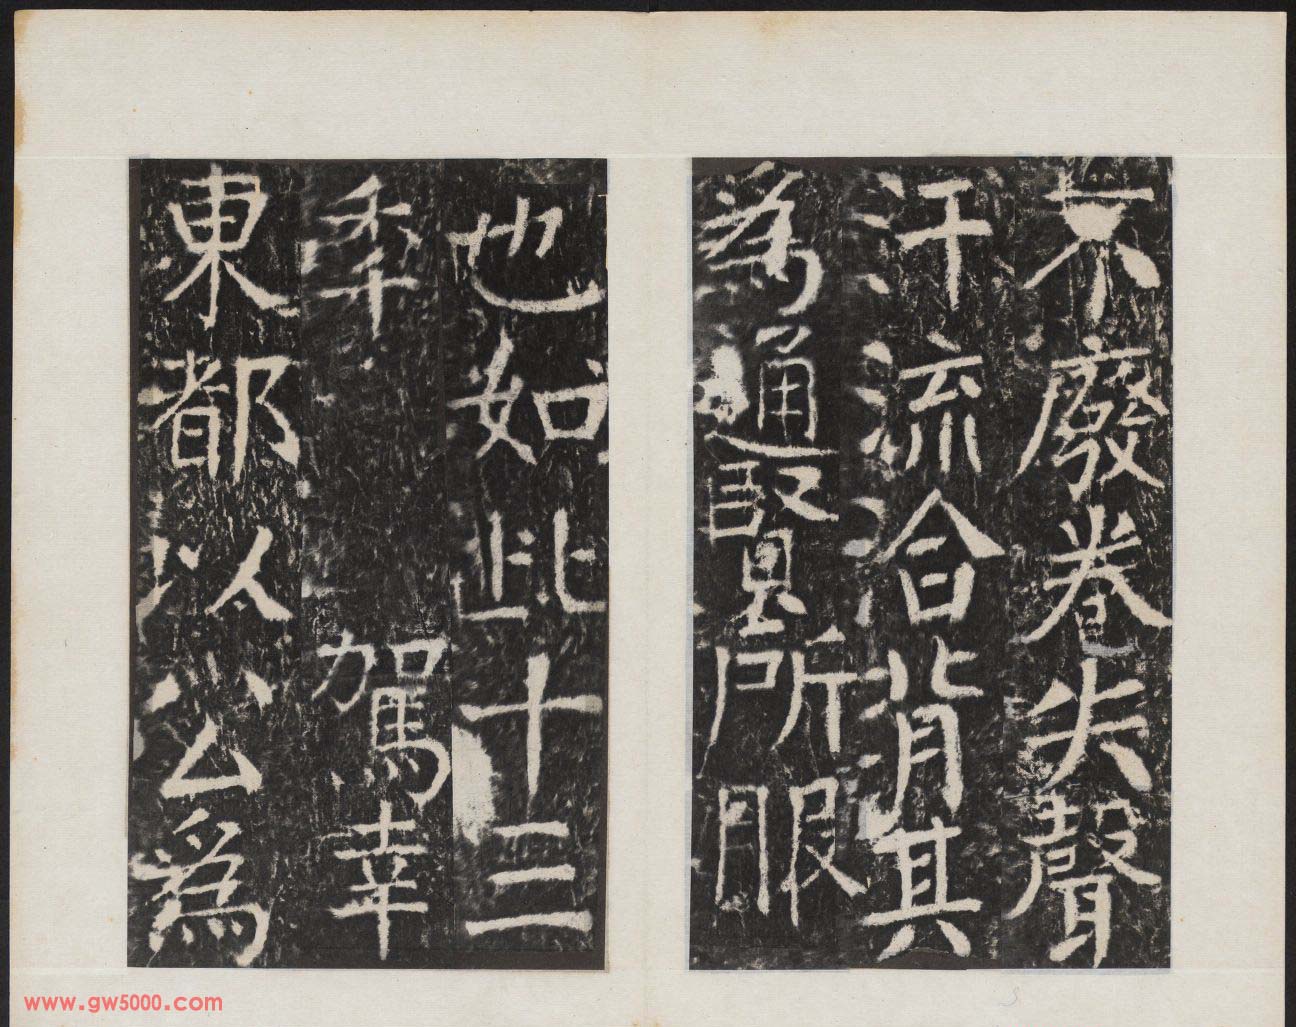 不廢卷失聲
汗流合背其
為通賢所服
也如此十三
年駕幸
東都以公為
www.gw5000.com